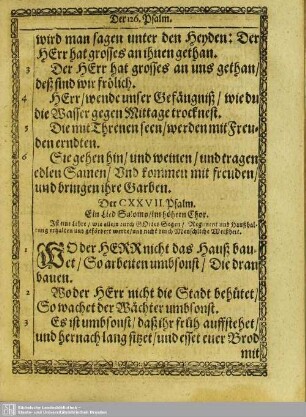 Der 126. Psalm.
wird man sagen unter den Heyden: Der
HErr hat grosses an ihnen gethan.
3 Der HErr hat grosses an uns gethan/
deß sind wir frölich.
4 HErr/ wende unser Gefängniß/ wie du
die Wasser gegen Mittage trocknest.
5 Die mit Threnen seen/ werden mit Freu-
den erndten.
6 Sie gehen hin/ und weinen/ und tragen
edlen Samen/ Und kommen mit freuden/
und bringen ihre Garben.
Der CXXVII. Psalm.
Ein Lied Salomo/ im höhern Chor.
Ist ein Lehre/ wie allein durch GOttes Segen/ Regiment und Haußhal-
tung erhalten und gefördert werde/ und nicht durch Menschliche Weißheit.
1 WO der HERR nicht das Hauß bau-
et/ So arbeiten umbsonst/ Die dran
bauen.
2 Wo der HErr nicht die Stadt behütet/
So wachet der Wächter umbsonst.
3 Es ist umbsonst/ daß ihr früh auffstehet
und hernach lang sitzet/ und esset euer Brod
mit